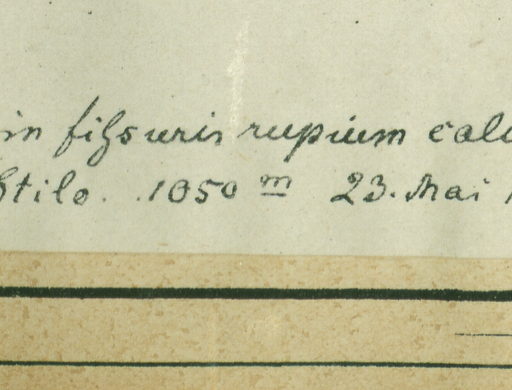 in fißsuris rupium calc
Stilo. 1050 m 23. Mai 1